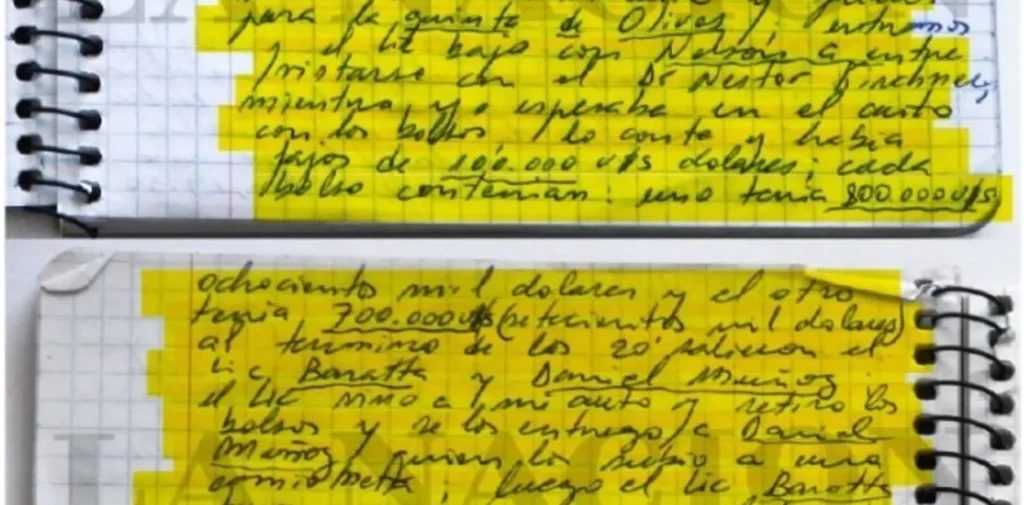 para la quinta de Olivos; entramos
y el lic bajo con Nelson a entre
vistarse con el Dr Nestor Kirchner,
mientras yo esperaba en el auto
con los bolsos, lo conte y habia
fajos de 100.000 u$s dolares; cada
bolso contenian: uno tenia 800.000 u$s
ochocientos mil dolares y el otro
tenia 700.000 u$s (setecientos mil dolares)
al termino de los 20' salieron el
Lic Baratta y Daniel Muñoz
el Lic vino a mi auto y retiro los
bolsos y se los entrego a Daniel
Muñoz, quien los subio a una
camioneta; luego el Lic Baratta
LA NACION